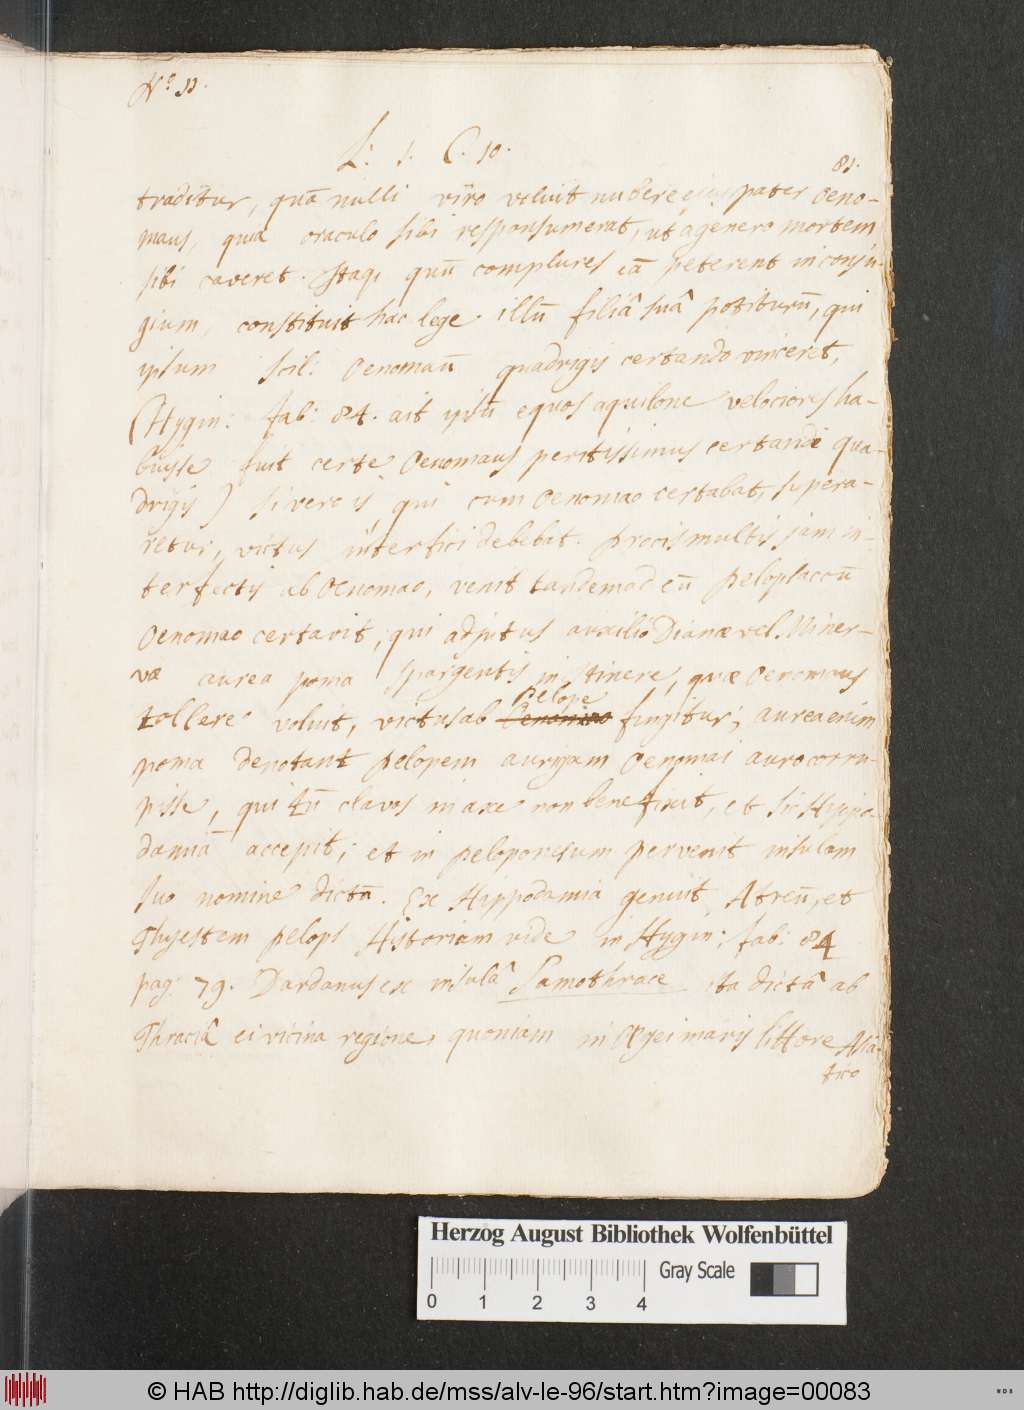 No 11.
L: 1. C. 10.
81.
traditur, quā nulli viro voluit nubere ejus pater Oeno-
maus, quia oraculo sibi responsum erat, ut à genero mortem
sibi caveret. Itaq; quū complures eā peterent in conju-
gium, constituit hac lege. illū filiâ suâ potiturū, qui
ipsum scil: Oenomaū quadrigis certando vinceret,
(Hygin: fab: 84. ait ipsū equos aquilone velociores ha-
buisse fuit certe Oenomaus peritissimus certandi qua-
drigis) si vero is qui cum Oenomao certabat, supera-
retur, victus interfici debebat. Procis multis jam in-
terfectis ab Oenomao, venit tandem ad eū Pelops ac cū
Oenomao certavit, qui adjutus auxilio Dianæ vel Miner-
væ aurea poma spargentis in itinere, quæ Oenomaus
tollere voluit, victus ab Pelope fingitur; aurea enim
poma denotant Pelopem aurigam Oenomai auro corru-
pisse, qui tū clavos in axe non bene finxit, et sic Hippo-
damiā accepit; et in Peloponesum pervenit insulam
suo nomine dictā. Ex Hippodamia genuit Atreū, et
Thyestem Pelops Historiam vide in Hygin: fab: 84
pag: 79. Dardanus ex insulâ Samothrace ita dictâ ab
Thraciâ ei vicina regione, quoniam in Ægei maris littore Asia-
tico
Herzog August Bibliothek Wolfenbüttel
Gray Scale
0 1 2 3 4
© HAB http://diglib.hab.de/mss/alv-le-96/start.htm?image=00083